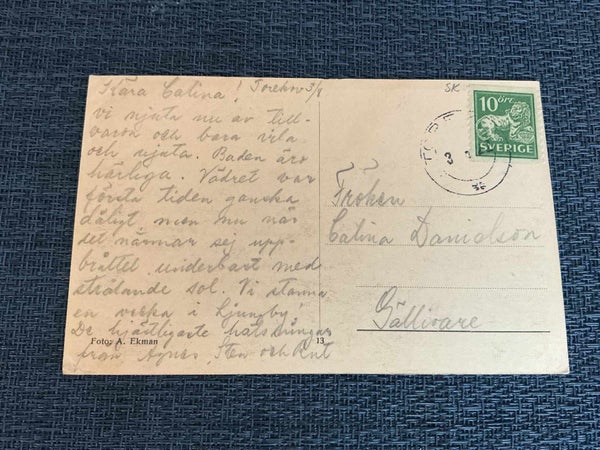 Kära Catina! Torekov 3/8
vi njuta nu av till-
varon och bara vila
och njuta. Baden äro
härliga. Vädret var
första tiden ganska
dåligt men nu när
det närmar sej upp-
brottet underbart med
strålande sol. Vi stanna
en vecka i Ljungby.
De hjärtligaste hälsningar
från Agnes, Sten och Knut
Foto: A. Ekman
13
SK
10 ÖRE
SVERIGE
TO
3
Fröken
Catina Danielson
Gällivare